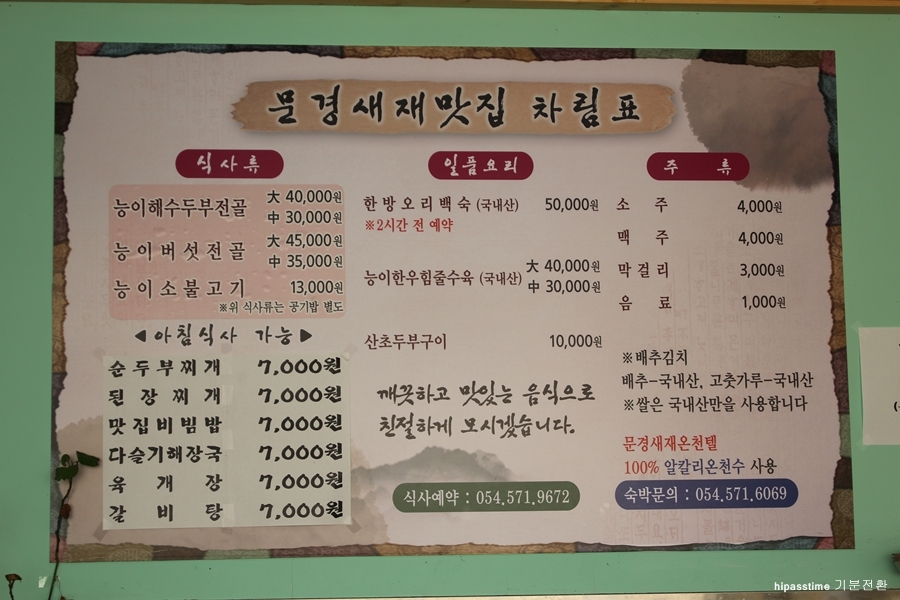 문경새재맛집 차림표
식사류
능이해수두부전골 大 40,000원
中 30,000원
능이버섯전골 大 45,000원
中 35,000원
능이소불고기 13,000원
※위 식사류는 공기밥 별도
◀아침식사 가능▶
순두부찌개 7,000원
된장찌개 7,000원
맛집비빔밥 7,000원
다슬기해장국 7,000원
육개장 7,000원
갈비탕 7,000원
일품요리
한방오리백숙 (국내산) 50,000원
※2시간 전 예약
능이한우힘줄수육 (국내산) 大 40,000원
中 30,000원
산초두부구이 10,000원
깨끗하고 맛있는 음식으로
친절하게 모시겠습니다.
식사예약 : 054.571.9672
주류
소주 4,000원
맥주 4,000원
막걸리 3,000원
음료 1,000원
※배추김치
배추-국내산, 고춧가루-국내산
※쌀은 국내산만을 사용합니다
문경새재온천텔
100% 알칼리온천수 사용
숙박문의 : 054.571.6069
hipasstime 기분전환